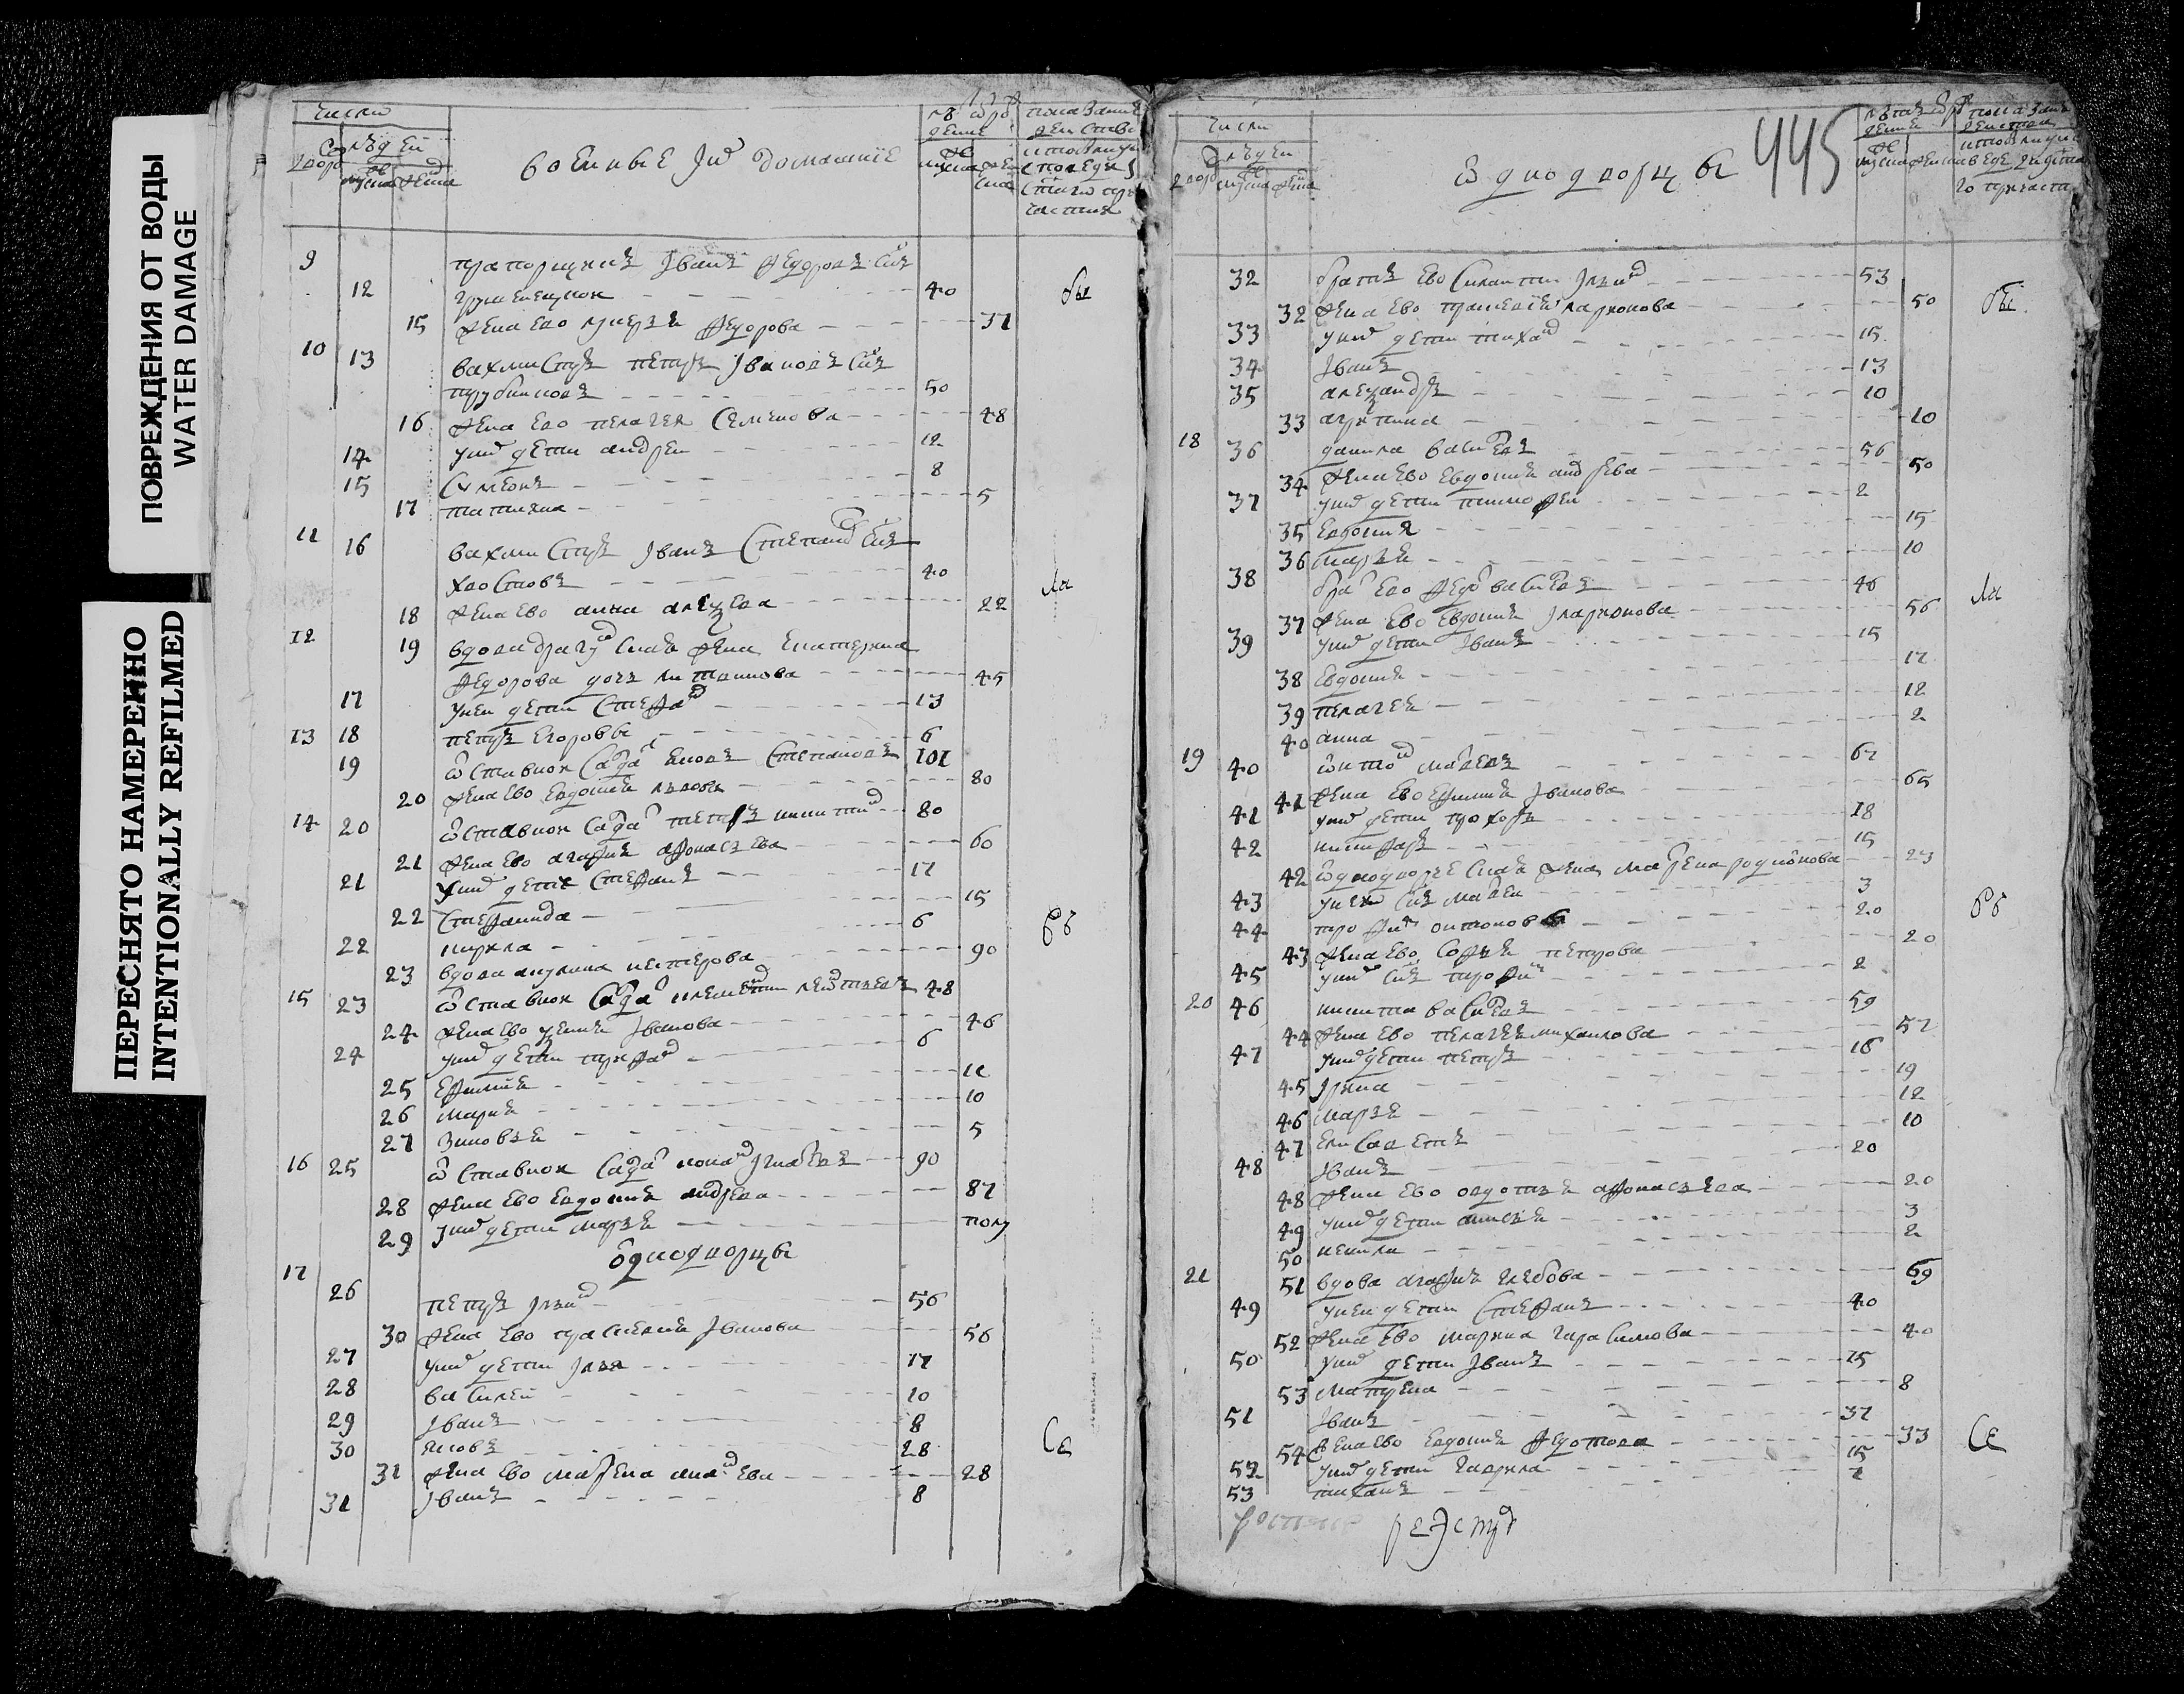 ПОВРЕЖДЕНИЯ ОТ ВОДЫ
WATER DAMAGE
ПЕРЕСНЯТО НАМЕРЕННО
INTENTIONALLY REFILMED
числи
военные и домашние
9
прапорщикъ Иванъ Федоровъ сынъ
12 40 бы
15 жена ево Федорова 37
10 13 вахмистръ петръ Ивановъ сынъ
трубниковъ 50
16 жена ево пелагея семенова 48
14 у них дети андреи 12
15 симеонъ 8
17 татияна 5
11 16 вахмистръ Иванъ степанов сынъ
хвостовъ 40 ли
18 жена ево анна алеѯева 22
12 19 вдова драгунская жена екатерина
федорова дочь 45
17 у неи дети стефан 13
13 18 петръ егоровъ 6
19 ѿставнои салдат яковъ степановъ 101
20 жена ево евдокия лвова 80
14 20 ѿставнои салдат петръ никитин 80
21 жена ево агафия афонасьева 60
21 у них дети стефанъ 17
22 стефанида 15
22 кирила 6 въ
23 вдова акулина нестерова 90
15 23 ѿставнои салдат клементеи леѡнтьевъ 48
24 жена ево ѯения Иванова 46
24 у них дети трифан 6
25 ефимия 12
26 мария 10
27 зиновья 5
16 25 ѿставнои салдат конан Игнатевъ 90
28 жена ево евдокия андреева 87
29 у них дети марья полу
ѡднодворцы
17
26 петръ Ильин 56
30 жена ево прасковия Иванова 56
27 у них дети Илья 17
28 василеи 10
29 Иванъ 8
30 яковъ 28 се
31 жена ево матрена ева 28
31 Иванъ 8
445
ѡднодворцы
32 братъ ево силантии Ильин 53
32 жена ево прасковия ларионова 50 бы
33 у них дети тихан 15
34 Иванъ 13
35 алеѯандръ 10
33 агрипина 10
18 36 данила василевъ 56
34 жена ево евдокия андреева 50
37 у них дети тимофеи 2
35 евдокия 15
36 марья 10
38 брат ево федор василевъ 46 ли
37 жена ево евдокия Иларионова 56
39 у них дети Иванъ 15
38 евдокия 17
39 пелагея 12
40 анна 2
19 40 ѡнтон матвевъ 67
41 жена ево ефимия Иванова 65
41 у них дети прохоръ 18
42 никифаръ 15
42 ѡднодворческая жена матрена родионова 23
43 у неи сынъ матвеи 3
44 трофим онтоновъ 20 въ
43 жена ево софья петрова 20
45 у них сынъ трофим 2
20 46 никита василевъ 59
44 жена ево пелагея михаилова 57
47 у них дети петръ 16
45 Ирина 19
46 марья 12
47 елисаветъ 10
48 Иванъ 20
48 жена ево овдотья афонасьева 20
49 у них дети анисья 3
50 ненила 2
21 51 вдова агафия глебова 69
49 у неи дети стефанъ 40
52 жена ево марина гарасимова 40
50 у них дети Иванъ 15
53 матрена 8
51 Иванъ 37
54 жена ево евдокия федотова 33 се
52 у них дети гаврила 15
53 тиханъ 7